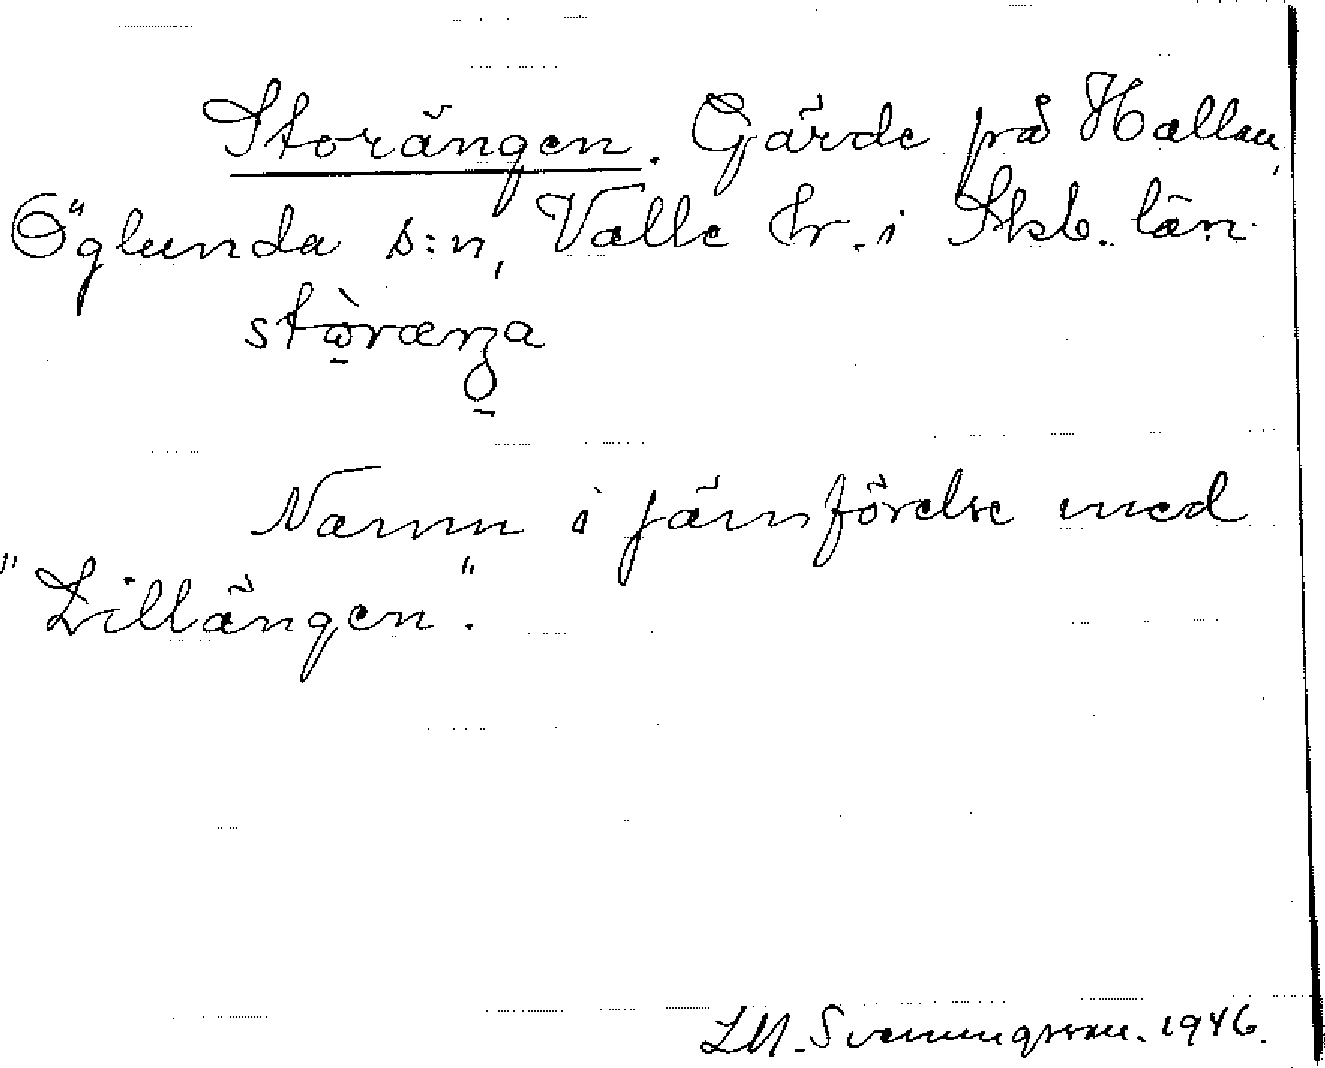 Storängen. Gärde på Hallan,
Öglunda s:n, Valle hr. i Skb. län.
stòræŋa
Namn i jämförelse med
"Lillängen".
LM. Svenungsson. 1946.